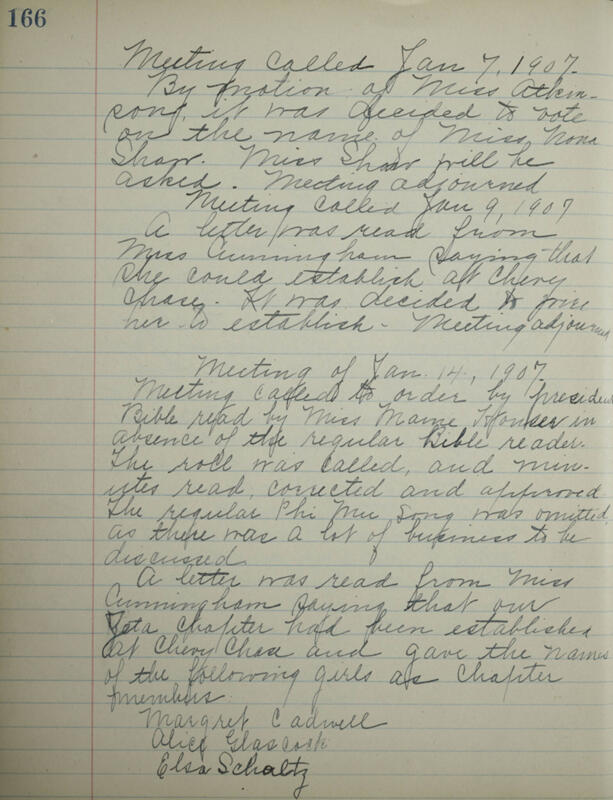 166
Meeting called Jan 7, 1907.
By motion of Miss Atkin-
son, it was decided to vote
on the name of Miss Nona
Shaw. Miss Shaw will be
asked. Meeting adjourned
Meeting called Jan 9, 1907
A letter was read from
Miss Cunningham saying that
she could establish at Chevy
Chase. It was decided to give
her to establish. Meeting adjourned
Meeting of Jan. 14, 1907
Meeting called to order by President
Bible read by Miss Mame Houser in
absence of the regular Bible reader.
The roll was called, and min-
utes read, corrected and approved
The regular Phi Mu Song was omitted
as there was a lot of business to be
discussed
A letter was read from Miss
Cunningham saying that our
Zeta Chapter had been established
at Chevy Chase and gave the names
of the following girls as Chapter
members:
Margret Cadwell
Alice Glascock
Elsa Schaltz